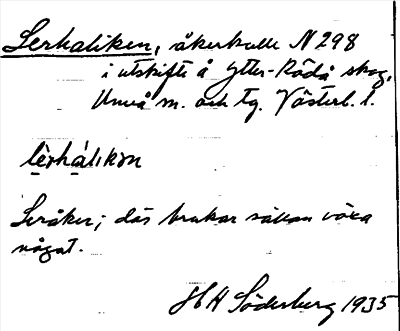 Lerhaliken, åkerkulle N 298
i utskifte å Ytter-Rödå skog,
Umeå m. och tg. Västerb. l.
lèrhálikən
Leråker; där brukar sällan växa
något.
H H Söderberg 1935